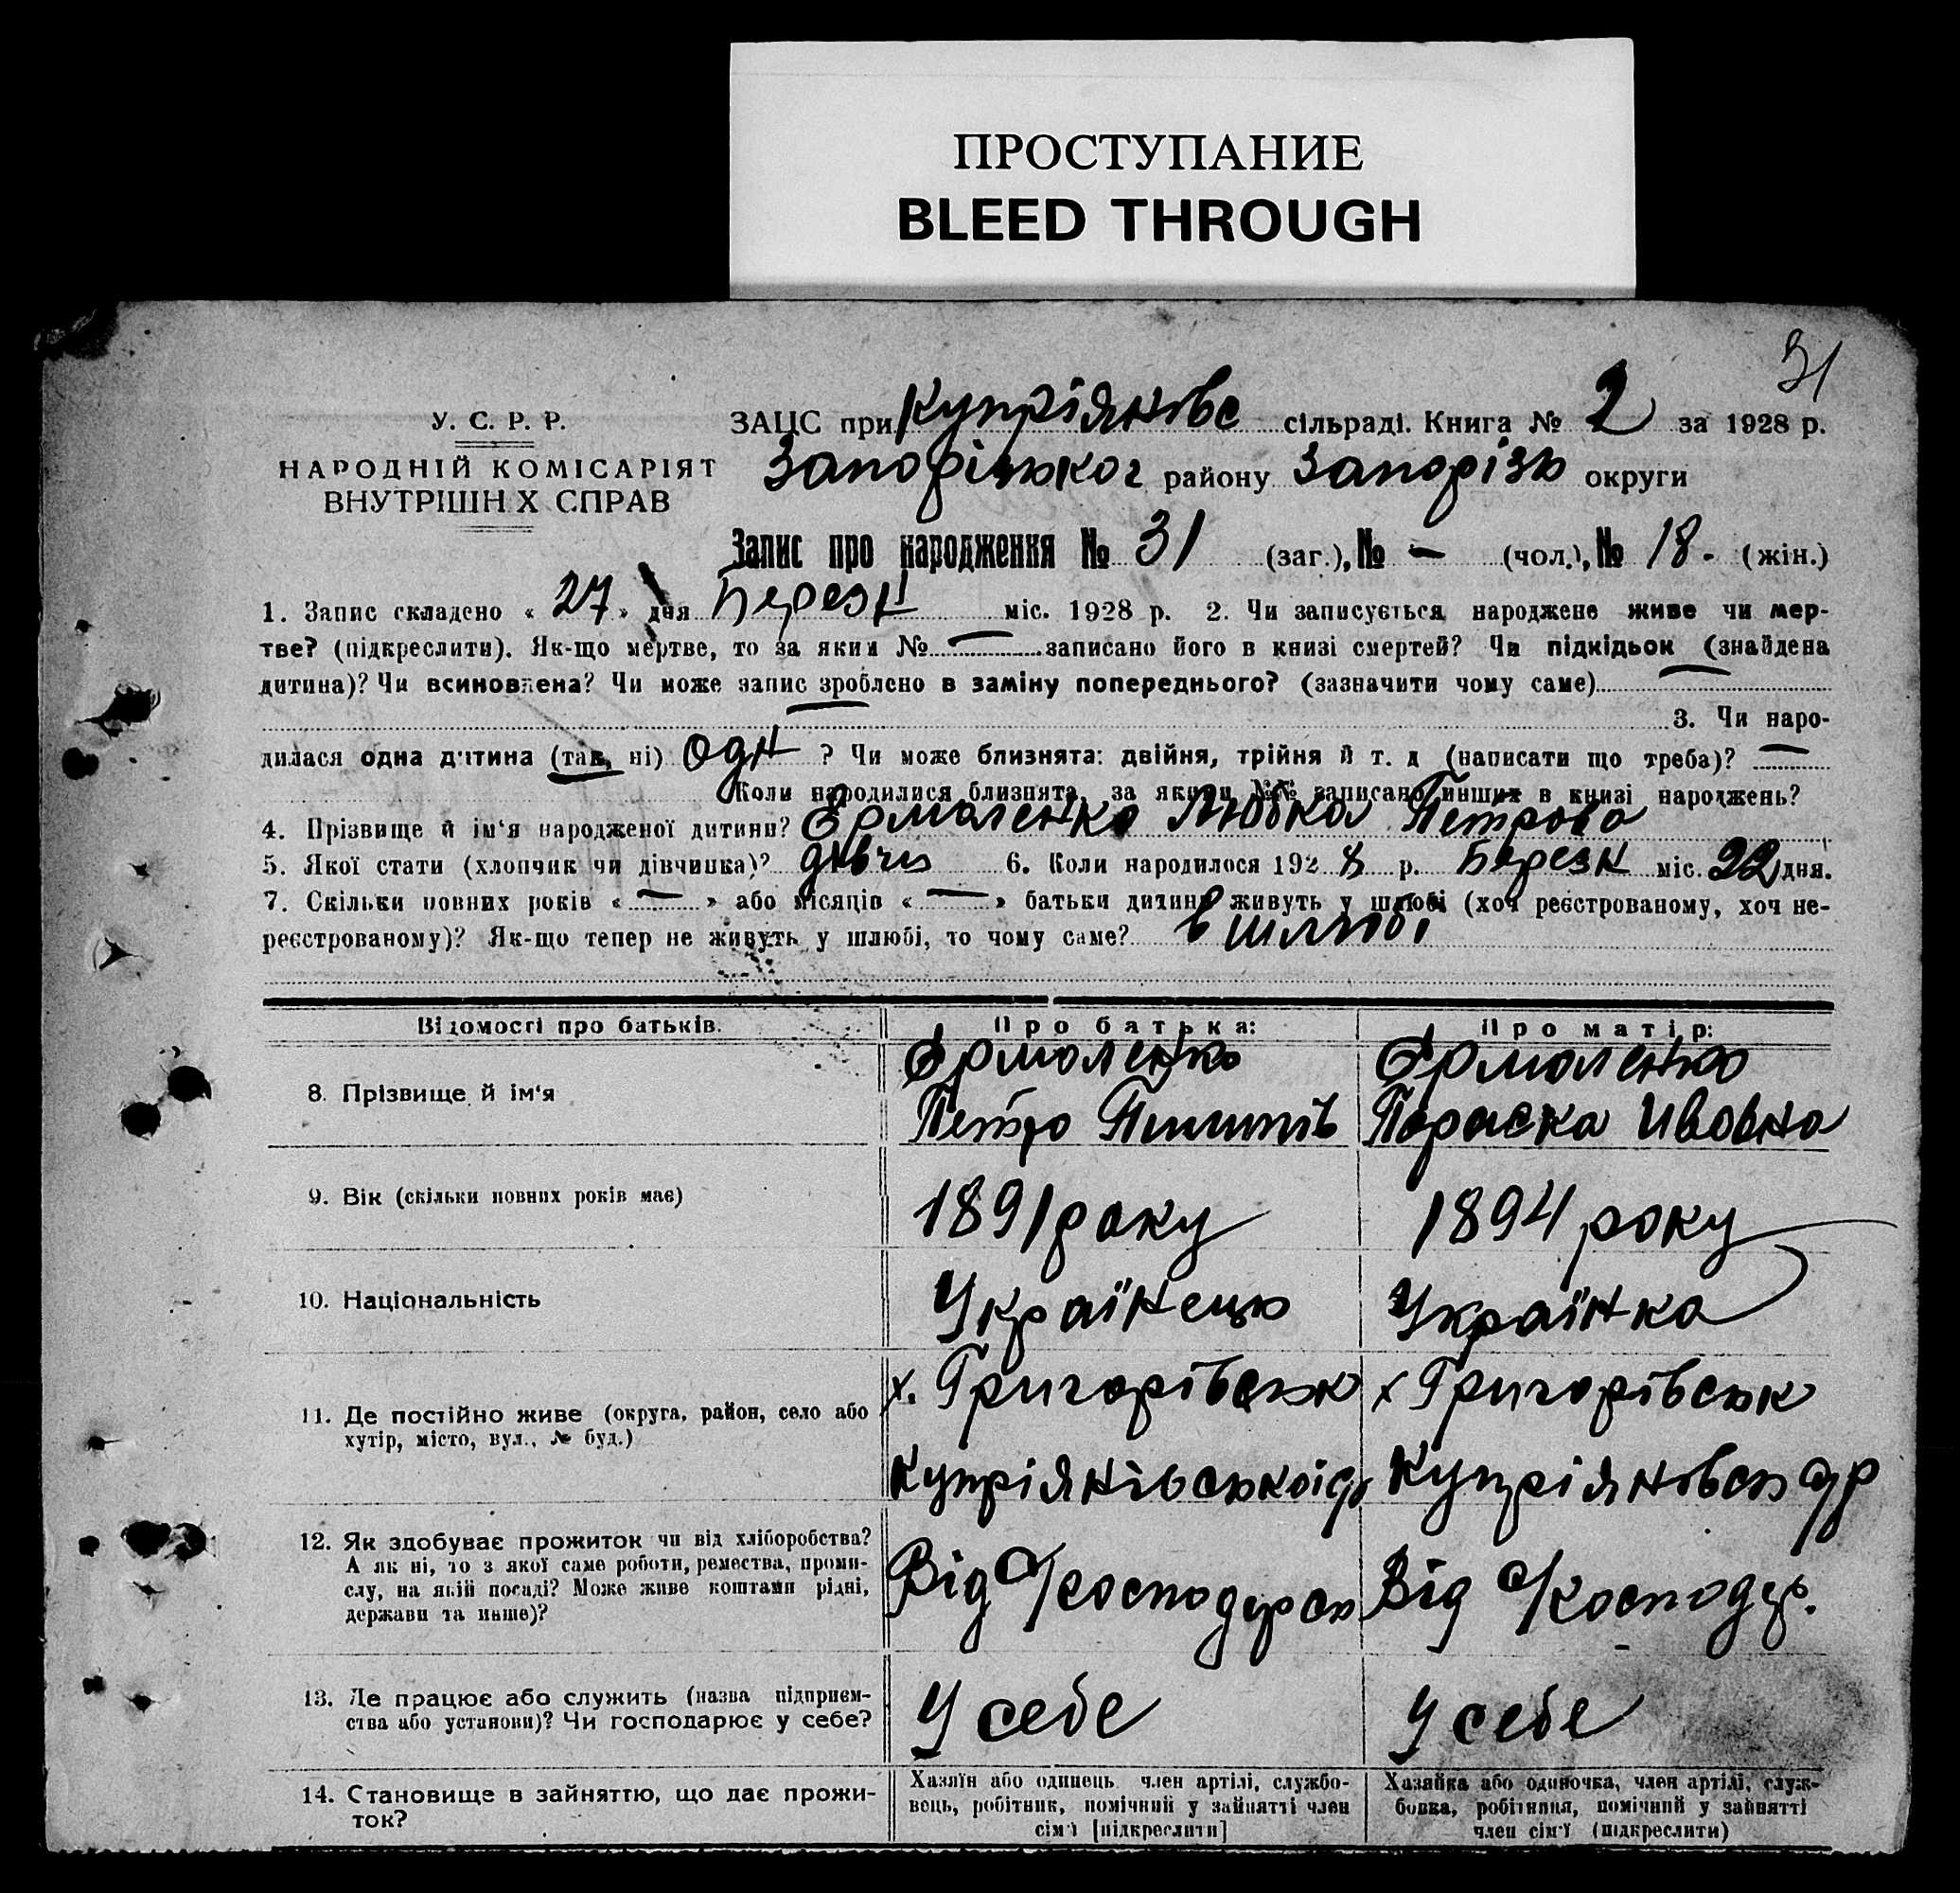 ПРОСТУПАНИЕ
BLEED THROUGH
31
У. С. Р. Р.
НАРОДНІЙ КОМІСАРІЯТ
ВНУТРІШН Х СПРАВ
ЗАЦС при Купріянівс сільраді. Книга № 2 за 1928 р.
району Запорізь округи
Запис про народження № 31 (заг.), № — (чол.), № 18. (жін.)
1. Запис складено « 27 » дня Березн міс. 1928 р. 2. Чи записується народжене живе чи мер-
тве? (підкреслити). Як-що мертве, то за яким № — записано його в книзі смертей? Чи підкідьок (знайдена
дитина)? Чи всиновлена? Чи може запис зроблено в заміну попереднього? (зазначити чому саме) —
3. Чи наро-
дилася одна дитина (так, ні) Одн ? Чи може близнята: двійня, трійня й т. д (написати що треба)? —
Коли народилися близнята, за якими №№ записано инших в книзі народжень?
4. Прізвище й ім'я народженої дитини? Єрмоленко Любка Петрова
5. Якої стати (хлопчик чи дівчинка)? дівчи 6. Коли народилося 192 8 р. Березн міс. 22 дня.
7. Скільки повних років « — » або місяців « — » батьки дитини живуть у шлюбі (хоч реєстрованому, хоч не-
реєстрованому)? Як-що тепер не живуть у шлюбі, то чому саме? в шлюбі
Відомості про батьків. Про батька: Про матір:
8. Прізвище й ім'я
Єрмоленко
Петро Пилипів
Єрмоленко
Параска Ивовна
9. Вік (скільки повних років має) 1891 року 1894 року
10. Національність Українець Українка
11. Де постійно живе (округа, район, село або
хутір, місто, вул., № буд.)
х. Григорівськ
Купріянівської с/р
х Григорівськ
Купріянівсь с/р
12. Як здобуває прожиток чи від хліборобства?
А як ні, то з якої саме роботи, ремества, проми-
слу, на якій посаді? Може живе коштами рідні,
держави та инше)?
Від с/господарсь
Від с/господар.
13. Де працює або служить (назва підприєм-
ства або установи)? Чи господарює у себе?
У себе
У себе
14. Становище в зайняттю, що дає прожи-
ток?
Хазяїн або одинець член артілі, службо-
вець, робітник, помічний у зайнятті член
сім'ї [підкреслити]
Хазяйка або одиночка, член артілі, служ-
бовка, робітниця, помічний у зайнятті
член сім'ї (підкреслити)